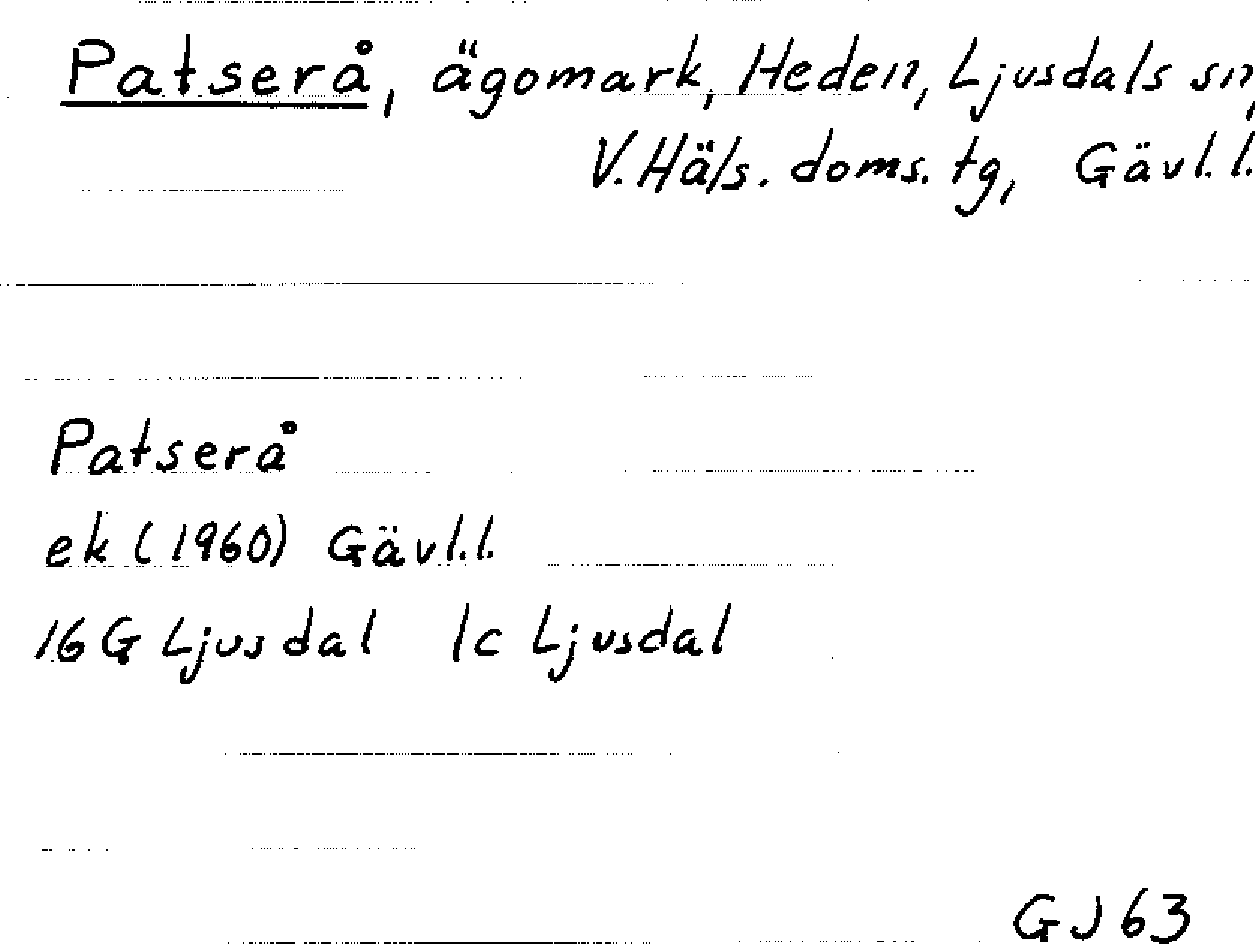 Patserå, ägomark, Heden, Ljusdals sn,
V. Häls. doms. tg, Gävl. l.
Patserå
ek (1960) Gävl. l.
16 G Ljusdal 1c Ljusdal
GJ 63